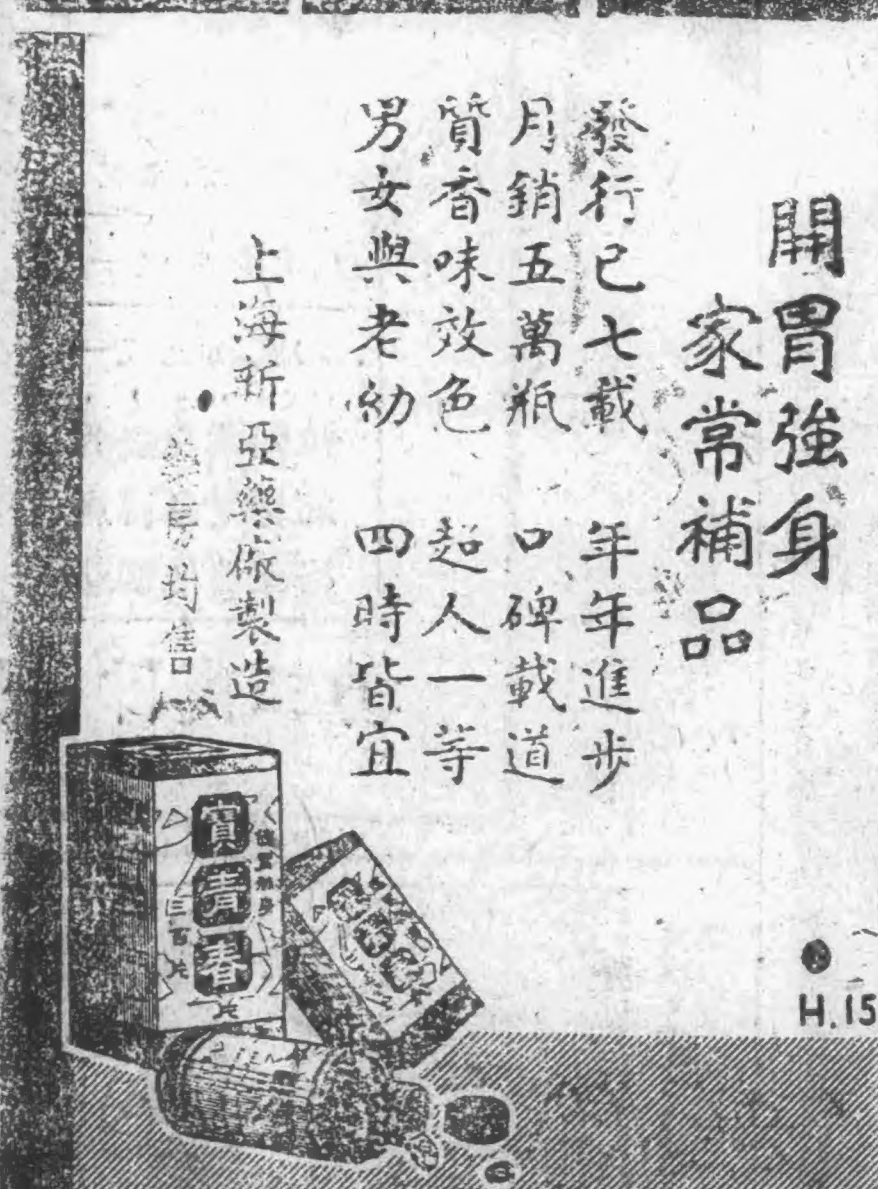 開胃強身
家常補品
發行已七載 年年進步
月銷五萬瓶 口碑載道
質香味效色 超人一等
男女與老幼 四時皆宜
上海新亞藥廠製造
藥房均售
寶青春
三百片
片
H.15